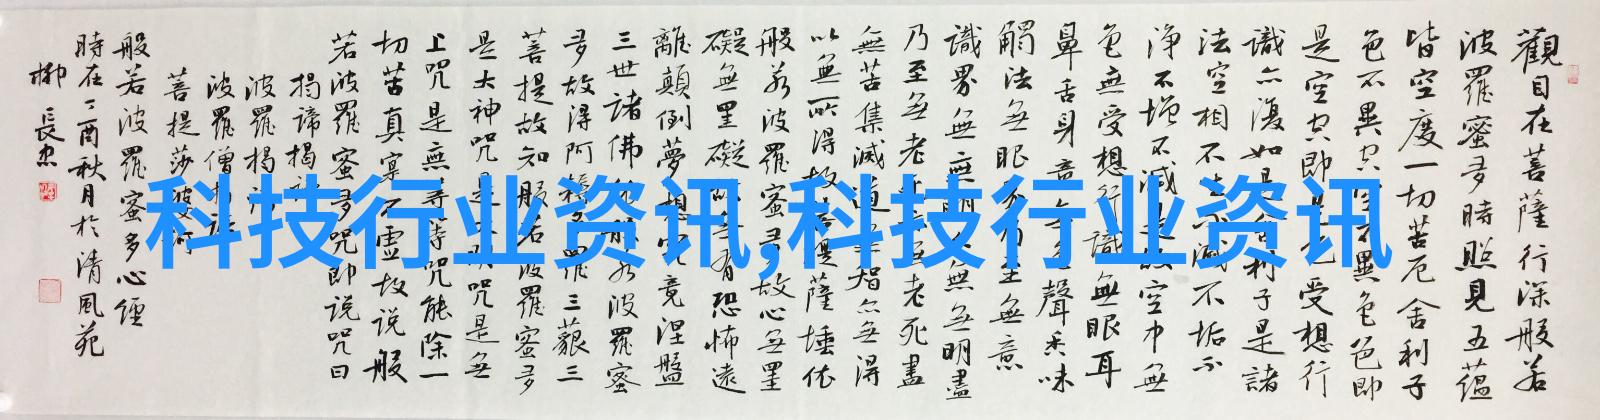 觀自在菩薩行深般若
波羅蜜多時照見五蘊
皆空度一切苦厄舍利子
色不異空空不異色色即
是空空即是色受想行
識亦復如是舍利子是諸
法空相不生不滅不垢不
淨不增不減是故空中無
色無受想行識無眼耳
鼻舌身意無色聲香味
觸法無眼界乃至無意
識界無無明亦無無明盡
乃至無老死亦無老死盡
無苦集滅道無智亦無得
以無所得故菩提薩埵依
般若波羅蜜多故心無罣
礙無罣礙故無有恐怖遠
離顛倒夢想究竟涅盤
三世諸佛依般若波羅蜜
多故得阿耨多羅三藐三
菩提故知般若波羅蜜多
是大神咒是大明咒是無
上咒是無等等咒能除一
切苦真實不虛故说般
若波羅蜜多咒即说咒曰
揭諦揭諦
波羅揭諦
波羅僧揭諦
菩提莎婆訶
般若波羅蜜多心經
時在丁酉秋月於清風苑
柳長忠
科技行业资讯,科技行业资讯